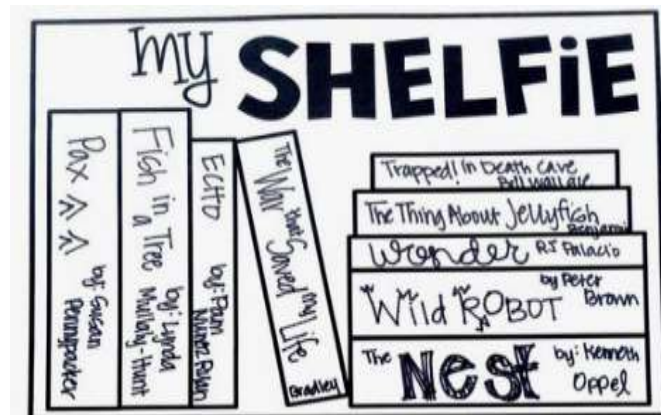 my SHELFiE
Pax
by: Susan
Pennypacker
Fish in
a Tree
by: Lynda
Mullaly-Hunt
ECHO
by: Pam
Munoz Ryan
The War that Saved my Life
Bradley
Trapped! In Death Cave
Bill Wallace
The Thing About Jellyfish
Benjamin
Wonder RJ Palacio
Wild ROBOT by Peter
Brown
The Nest by: Kenneth
Oppel